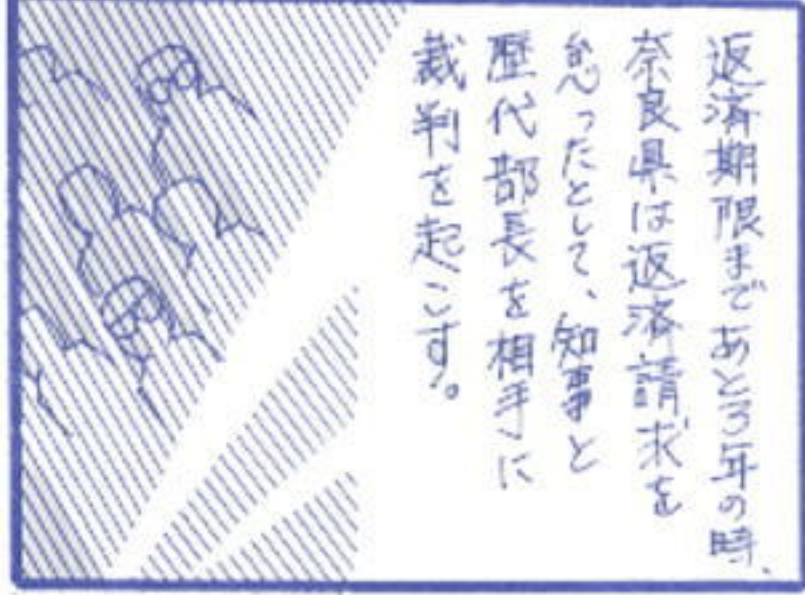 返済期限まであと3年の時、
奈良県は返済請求を
怠ったとして、知事と
歴代部長を相手に
裁判を起こす。